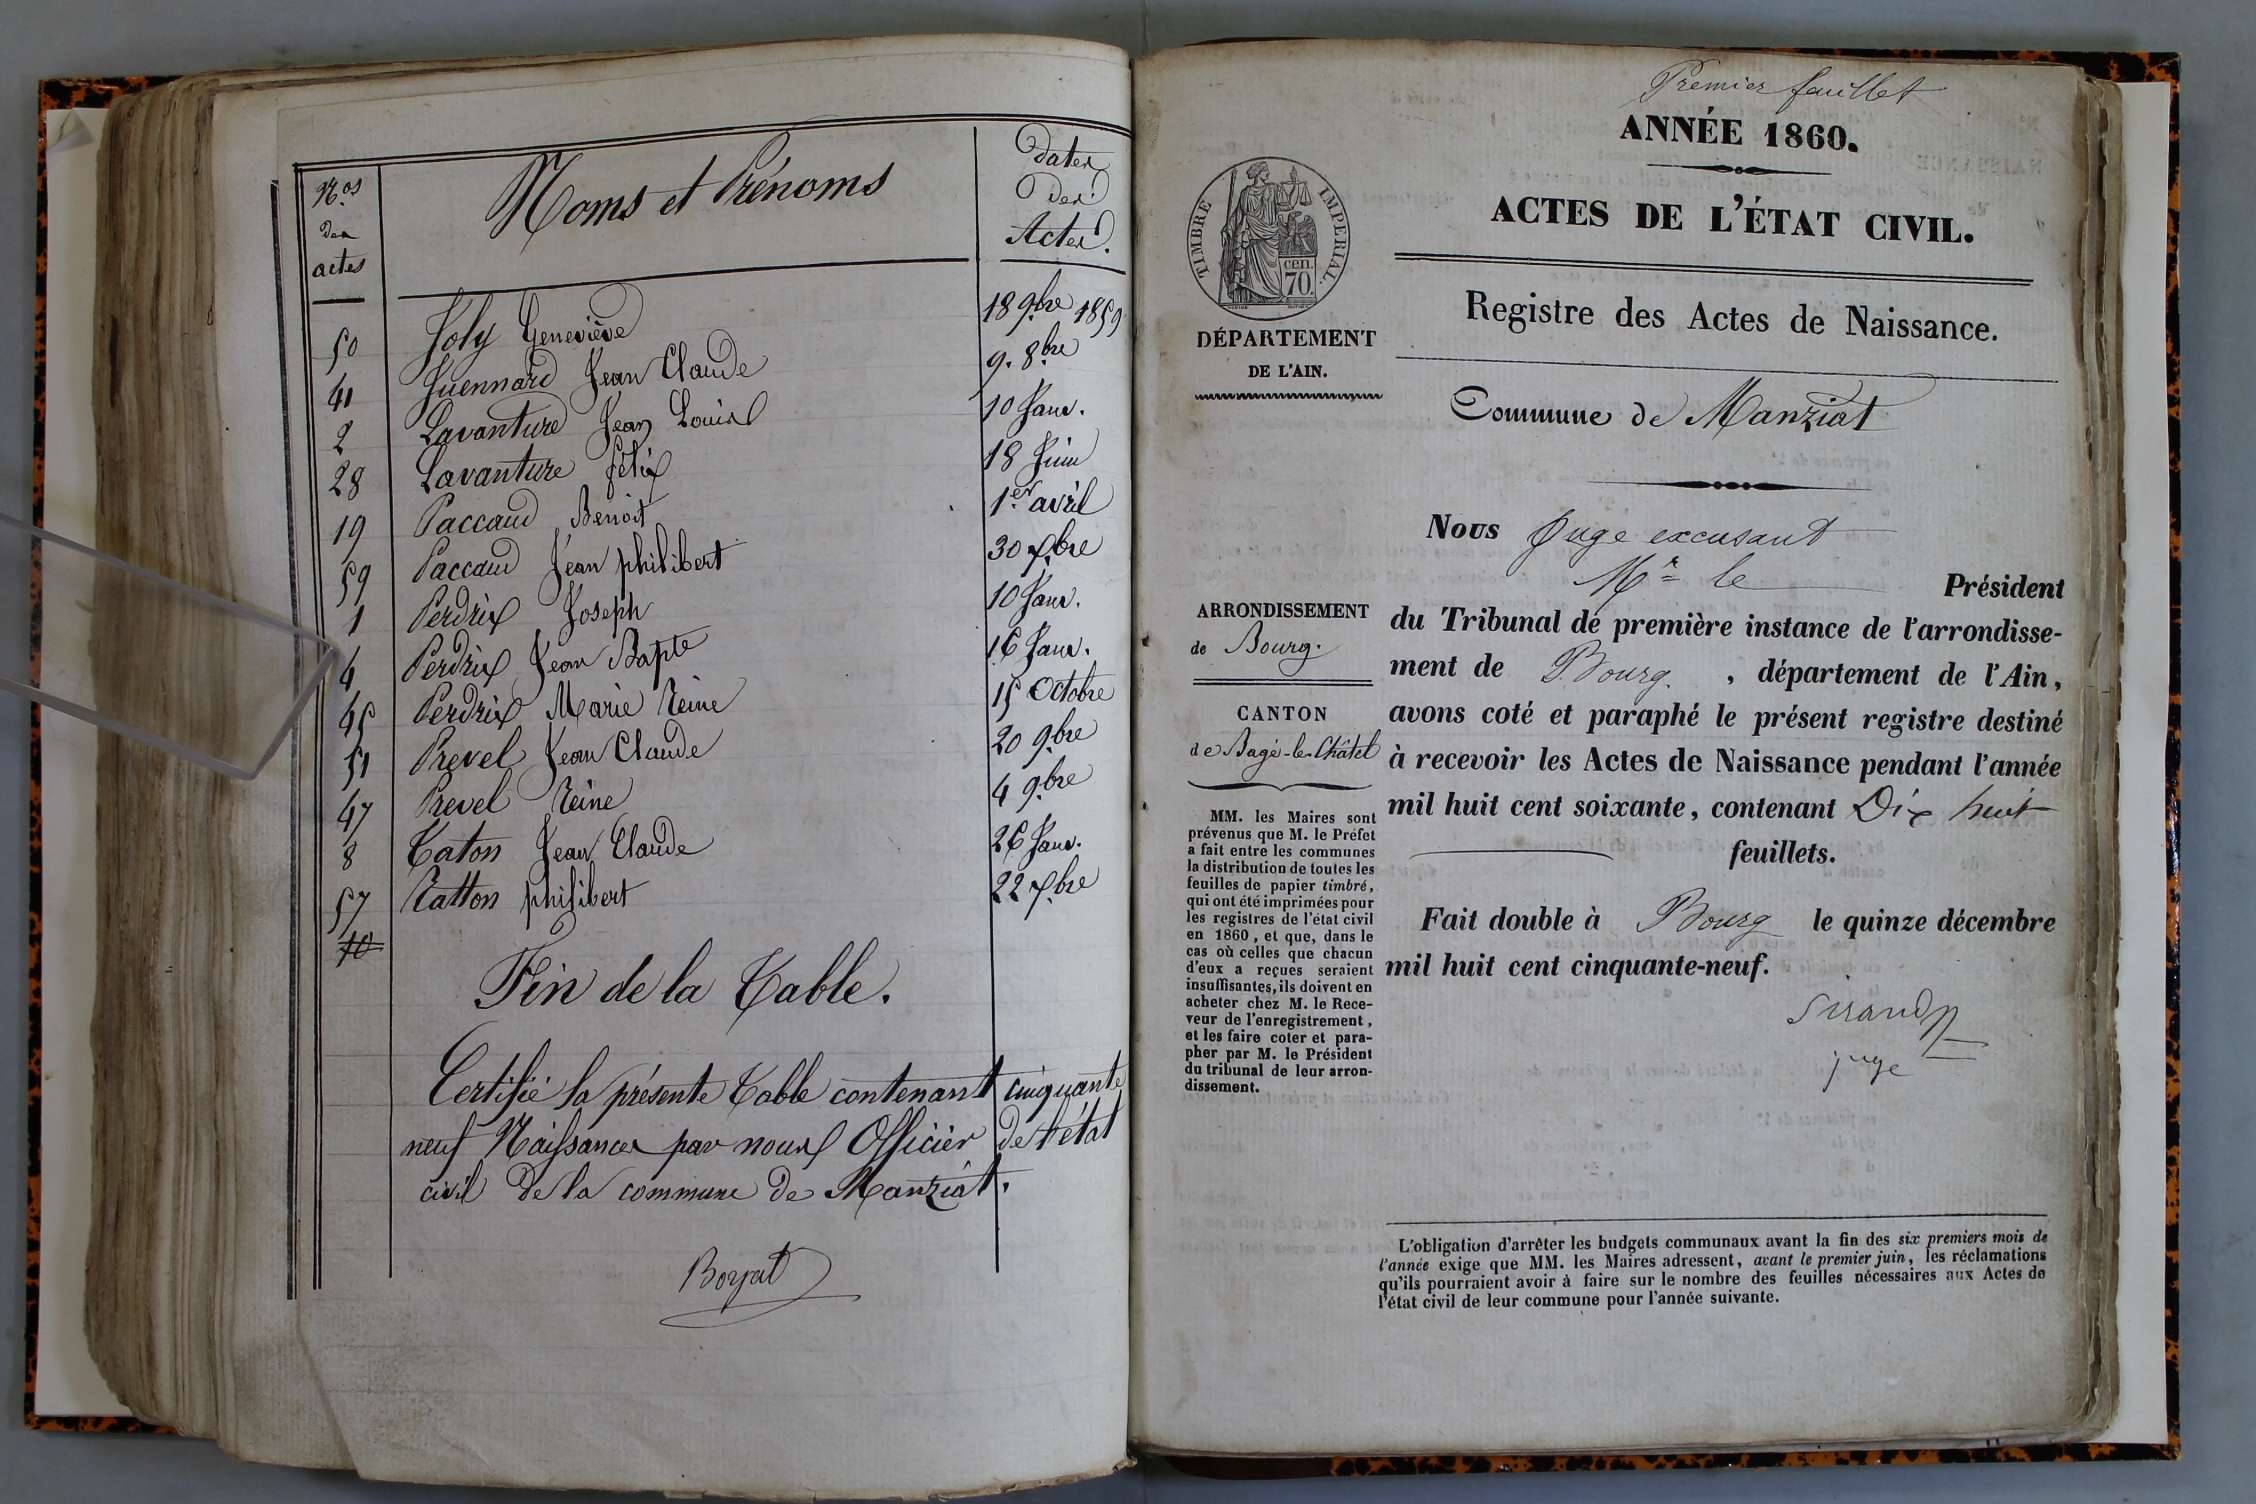 N.os
des
actes
Noms et Prénoms
Dates
Des
Actes.
50 Joly Geneviève 18 9.bre 1859
41 Juennard Jean Claude 9. 8.bre
2 Lavanture Jean Louis 10 Janv.
28 Lavanture félix 18 Juin
19 Paccaud Benoit 1.er avril
59 Paccaud Jean philibert 30 Xbre
1 Perdrix Joseph 10 Janv.
4 Perdrix Jean Bapte 16 Janv.
45 Perdrix Marie Reine 15 Octobre
51 Prevel Jean Claude 20 9.bre
47 Prevel Reine 4 9.bre
8 Caton Jean Claude 26 Janv.
57 Ratton philibert 22 Xbre
10
Fin de la Table.
Certifié la présente Table contenant cinquante
neuf Naissances par nous Officier de l'état
civil de la commune de Manziat.
Boyat
Premier feuillet
ANNÉE 1860.
ACTES DE L'ÉTAT CIVIL.
Registre des Actes de Naissance.
Commune de Manziat
TIMBRE IMPERIAL.
cen.
70.
DÉPARTEMENT
DE L'AIN.
ARRONDISSEMENT
de Bourg.
CANTON
de Bagé-le-Châtel
MM. les Maires sont
prévenus que M. le Préfet
a fait entre les communes
la distribution de toutes les
feuilles de papier timbré,
qui ont été imprimées pour
les registres de l'état civil
en 1860, et que, dans le
cas où celles que chacun
d'eux a reçues seraient
insuffisantes, ils doivent en
acheter chez M. le Rece-
veur de l'enregistrement,
et les faire coter et para-
pher par M. le Président
du tribunal de leur arron-
dissement.
Nous Juge excusant
Mr le Président
du Tribunal de première instance de l'arrondisse-
ment de Bourg. , département de l'Ain,
avons coté et paraphé le présent registre destiné
à recevoir les Actes de Naissance pendant l'année
mil huit cent soixante, contenant Dix huit
feuillets.
Fait double à Bourg le quinze décembre
mil huit cent cinquante-neuf.
Sirand
juge
L'obligation d'arrêter les budgets communaux avant la fin des six premiers mois de
l'année exige que MM. les Maires adressent, avant le premier juin, les réclamations
qu'ils pourraient avoir à faire sur le nombre des feuilles nécessaires aux Actes de
l'état civil de leur commune pour l'année suivante.